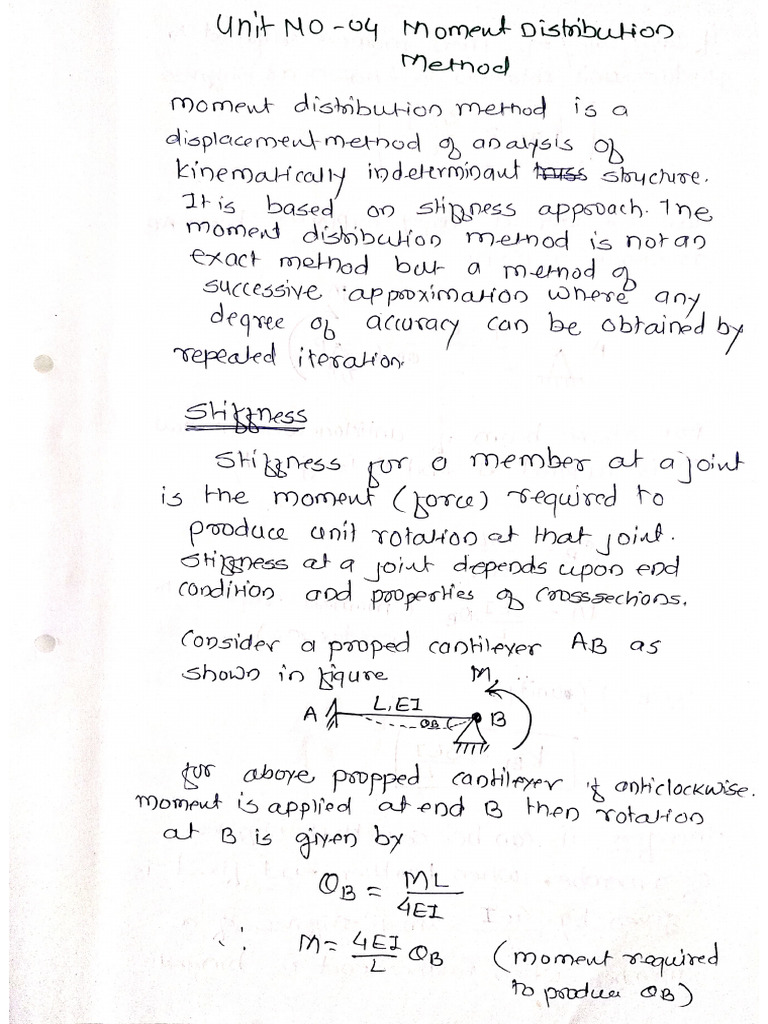 Unit NO-04 Moment Distribution
Method
moment distribution method is a
displacement method of analysis of
kinematically indeterminant truss structure.
It is based on stiffness approach. The
moment distribution method is not an
exact method but a method of
successive approximation where any
degree of accuracy can be obtained by
repeated iteration.
Stiffness
Stiffness for a member at a joint
is the moment (force) required to
produce unit rotation at that joint.
Stiffness at a joint depends upon end
condition and properties of crosssections.
Consider a proped cantilever AB as
shown in figure
M
L, EI
A θB B
for above propped cantilever if anticlockwise.
moment is applied at end B then rotation
at B is given by
θB = ML/4EI
∴ M = 4EI/L θB (moment required
to produce θB)